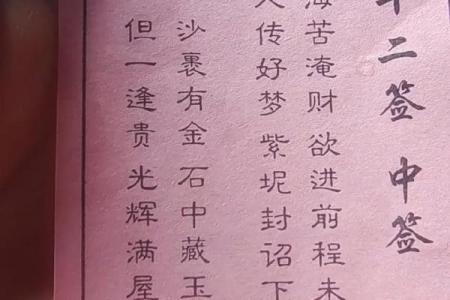 十二签 中签
海苦淹财 欲进前程未
传好梦 紫坭封诏下
沙裹有金 石中藏玉
但一逢贵 光辉满屋